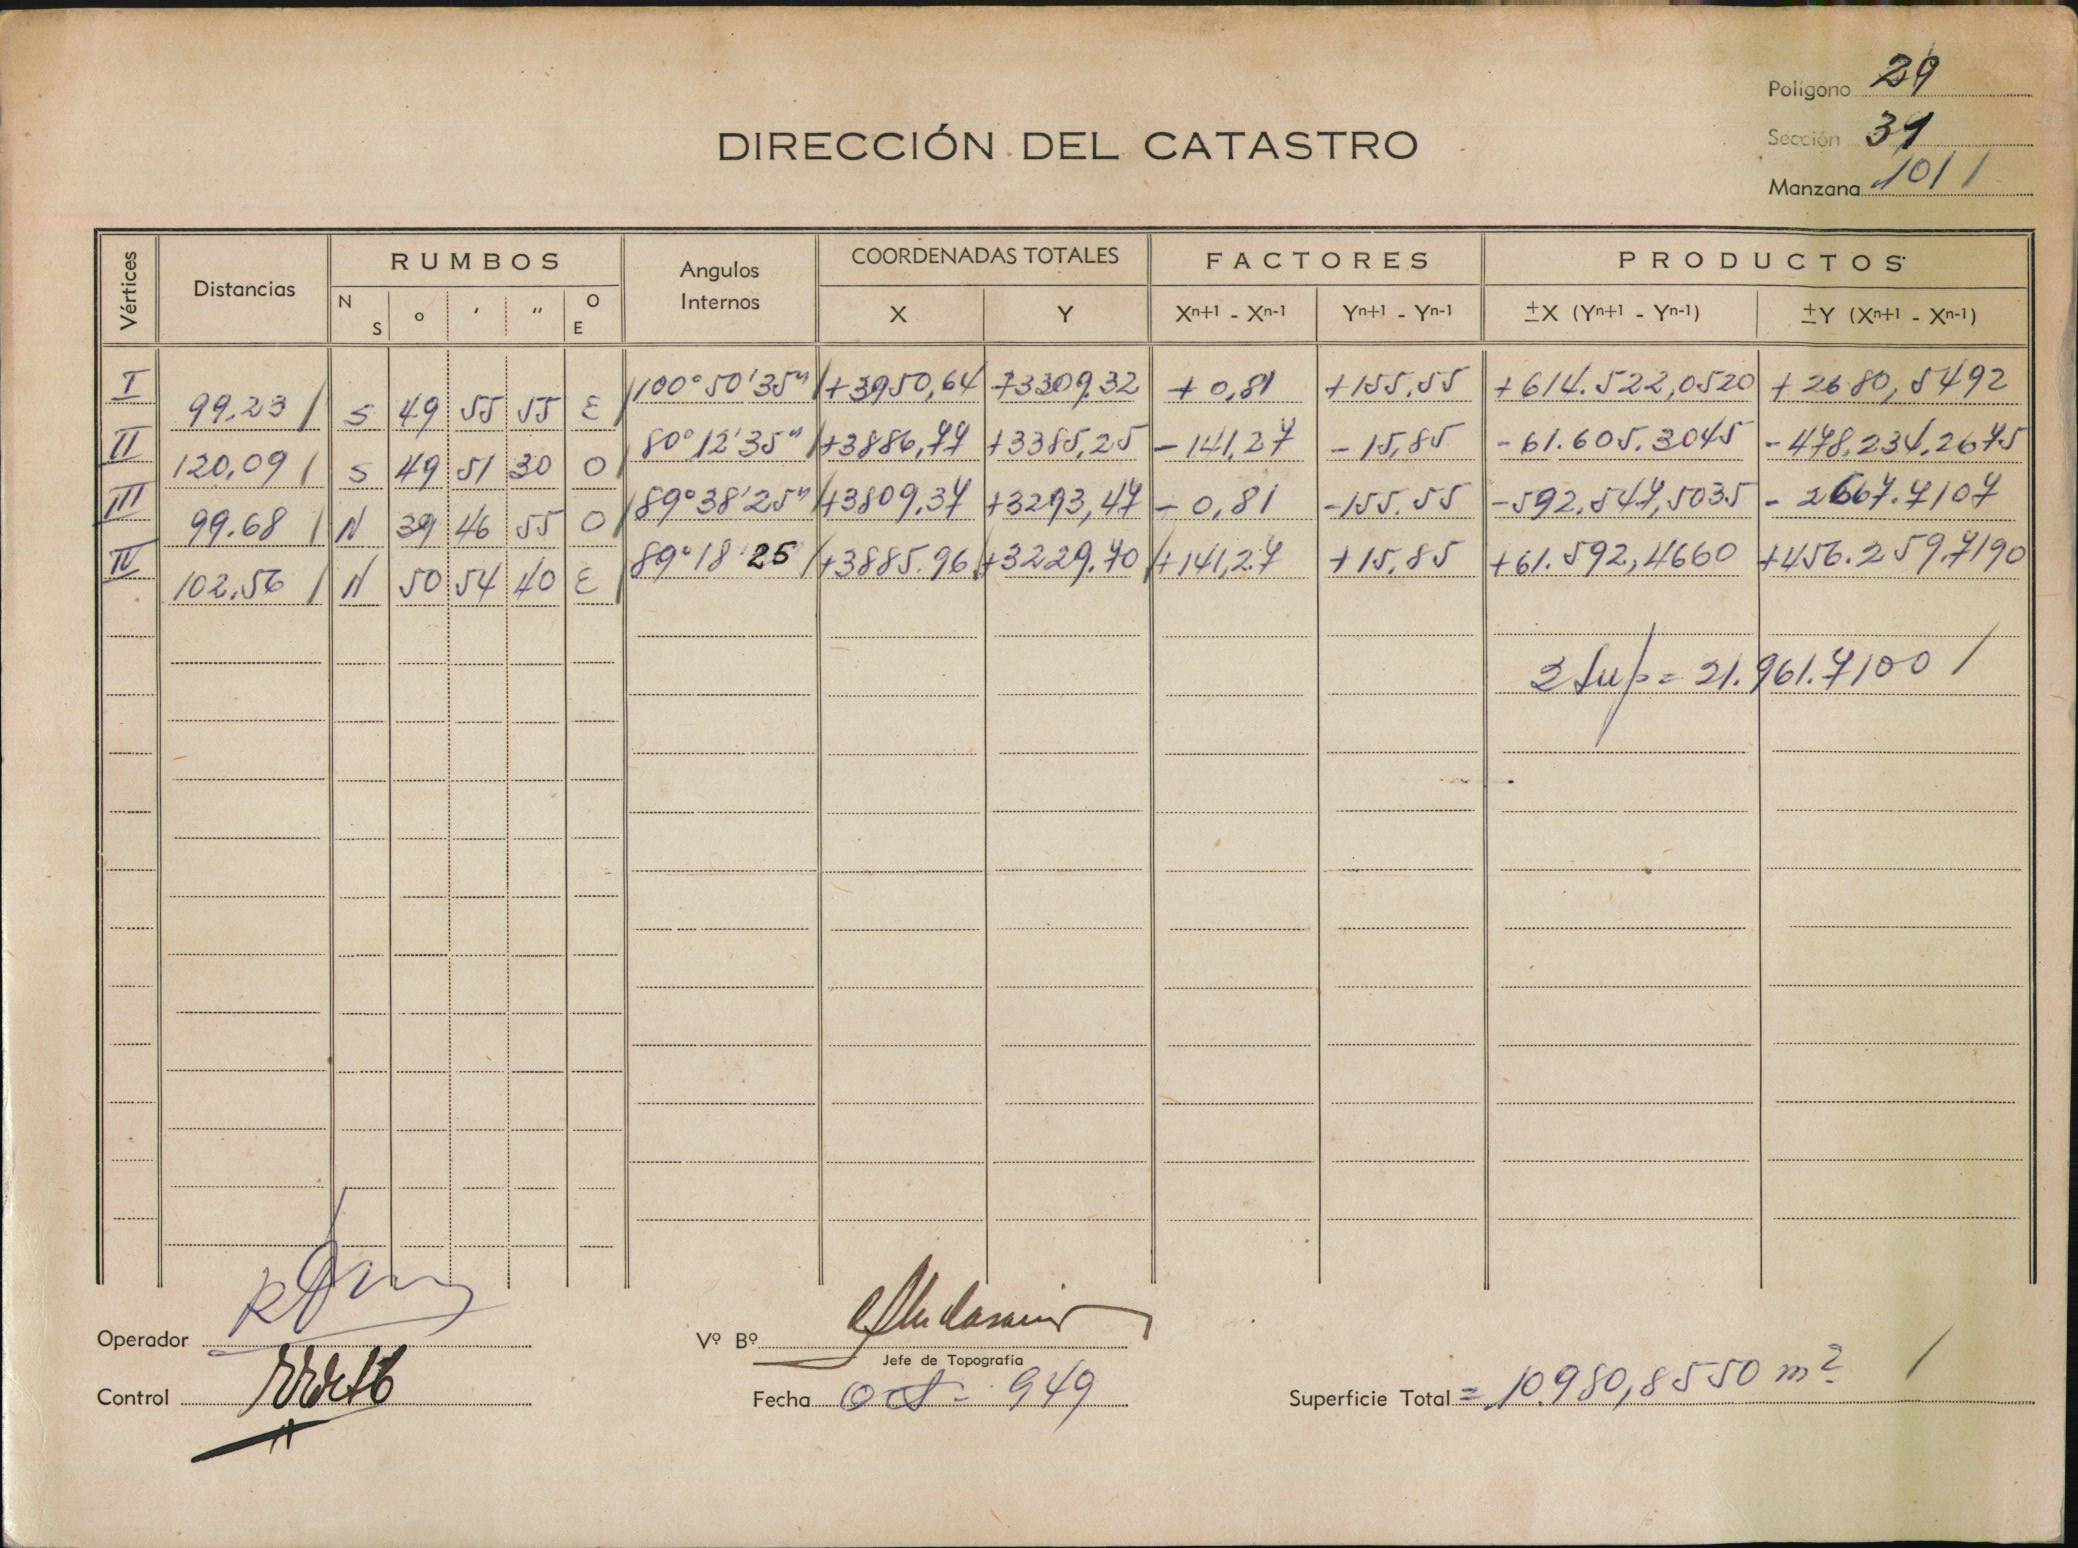 Polígono 29
Sección 31
Manzana 101
DIRECCIÓN DEL CATASTRO
Vértices Distancias RUMBOS Angulos Internos COORDENADAS TOTALES FACTORES PRODUCTOS
N S o ′ ″ O E X Y Xn+1 - Xn-1 Yn+1 - Yn-1 ±X (Yn+1 - Yn-1) ±Y (Xn+1 - Xn-1)
I 99.23 S 49 55 55 E 100° 50' 35" +3950,64 +3309.32 +0,81 +155.55 +614.522,0520 +2680,5492
II 120.09 S 49 51 30 O 80° 12' 35" +3886,77 +3385,25 -141,27 -15,85 -61.605.3045 -478.234.2675
III 99.68 N 39 46 55 O 89° 38' 25" +3809,37 +3293,47 -0,81 -155.55 -592.547,5035 -2667.7107
IV 102.56 N 50 54 40 E 89° 18' 25 +3885.96 +3229.70 +141,27 +15,85 +61.592,4660 +456.259.7190
2 Sup = 21.961.7100
Operador
Vº Bº
Jefe de Topografía
Control
Fecha Oct - 949
Superficie Total = 10.980,8550 m²